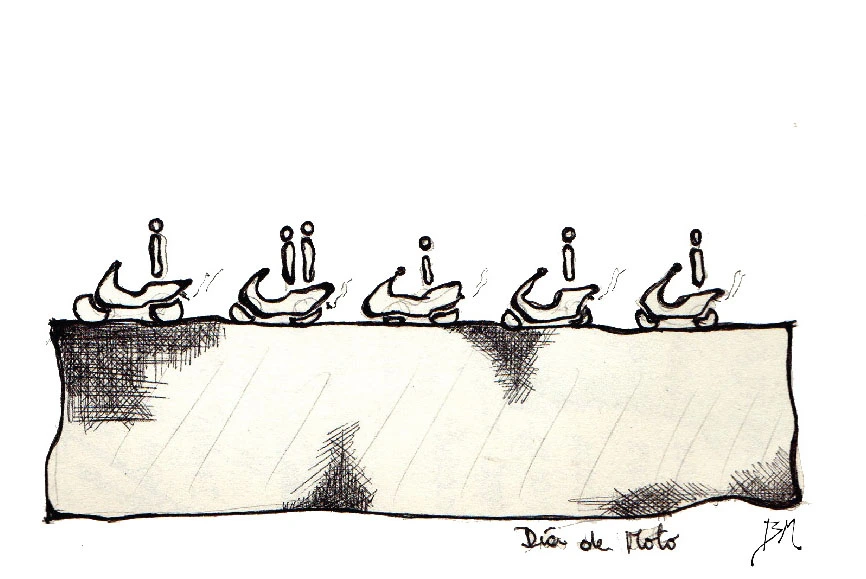 Día de Moto
BM